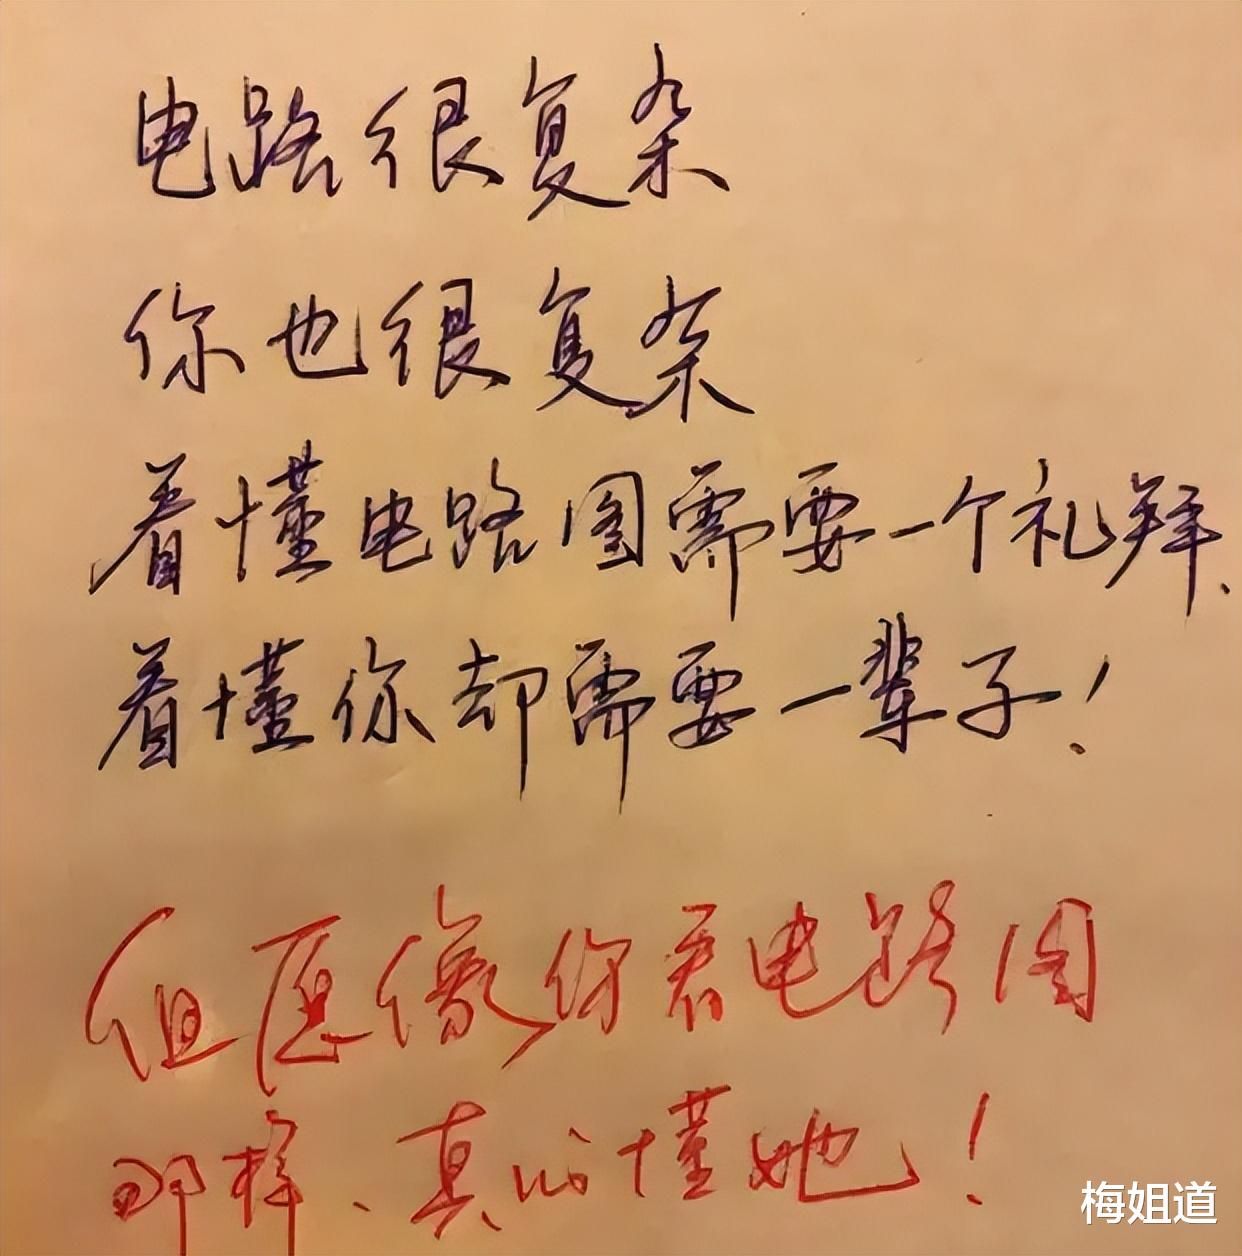 电路很复杂
你也很复杂
看懂电路图需要一个礼拜、
看懂你却需要一辈子！
但愿像你看电路图
那样、真心懂她！
梅姐道